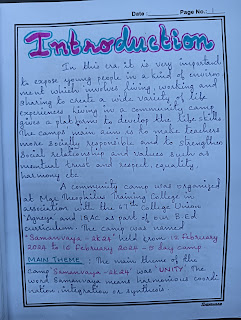 Date :
Page No. : 1
Introduction
In this era it is very important
to expose young people in a kind of environ
ment which involves living, working and
sharing to create a wide variety of life
experience living in a community camp
gives a platform to develop the life skills
The camps main aim is to make teachers
more socially responsible and to strengthen
Social relationship and values such as
mutual trust and respect, equality,
harmony etc.
A community camp was organized
at Mar Theophilus Training College in
association with the 67th College Union
'Agneya' and IQAC as part of our B.Ed
curriculum. The camp was named
"Samanvaya - 2k24" held from 12 February
2024 to 16 February 2024 - 5 day camp
MAIN THEME : The main theme of the
camp Samanvaya - 2k24 was "UNITY". The
word Samanvaya means harmonious coordi
nation, integration or synthesis.